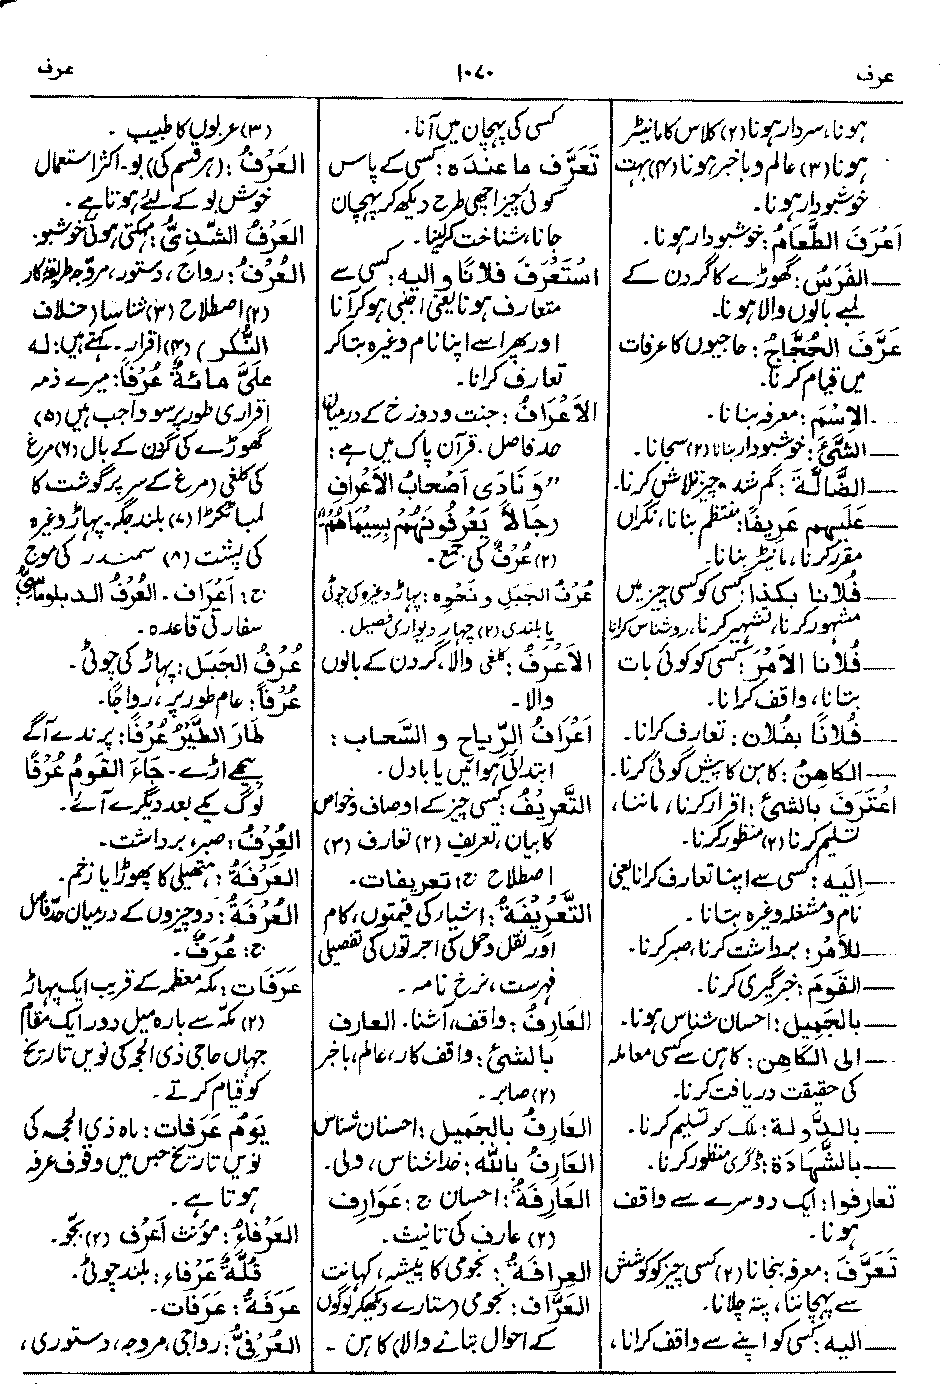 عرف
۱۰۷۰
عرف
ہونا، سردار ہونا (۲) کلاس کا مانیٹر
ہونا (۳) عالم و باخبر ہونا (۴) بہت
خوشبودار ہونا۔
اَعْرَفَ الطَّعَامُ: خوشبودار ہونا۔
— الفَرَسُ: گھوڑے کا گردن کے
لمبے بالوں والا ہونا۔
عَرَّفَ الحُجَّاجُ: حاجیوں کا عرفات
میں قیام کرنا۔
— الاِسْمَ: معرفہ بنانا۔
— الشَّیْئَ: خوشبودار بنانا (۲) سجانا۔
— الضَّالَّةَ: گم شدہ چیز تلاش کرنا۔
— عَلَیهِم عَرِیفًا: منتظم بنانا، نگراں
مقرر کرنا، مانیٹر بنانا۔
— فُلَانًا بِکَذَا: کسی کو کسی چیز میں
مشہور کرنا، تشہیر کرنا، روشناس کرانا
— فُلَانًا الاَمْرَ: کسی کو کوئی بات
بتانا، واقف کرانا۔
— فُلَانًا بِفُلَان: تعارف کرانا۔
— الکَاهِنُ: کاہن کا پیش گوئی کرنا۔
اُعْتَرَفَ بِالشَّیْئِ: اقرار کرنا، ماننا،
تسلیم کرنا (۲) منظور کرنا۔
— اِلَیه: کسی سے اپنا تعارف کرانا یعنی
نام و مشغلہ وغیرہ بتانا۔
— لِلاَمْرِ: برداشت کرنا، صبر کرنا۔
— القَوْمَ: خبر گیری کرنا۔
— بِالجَمِیل: احسان شناس ہونا۔
— الی الکَاهِن: کاہن سے کسی معاملہ
کی حقیقت دریافت کرنا۔
— بِالدَّولَة: ملک کو تسلیم کرنا۔
— بِالشَّهَادَة: ڈگری منظور کرنا۔
تعارفوا: ایک دوسرے سے واقف
ہونا۔
تَعَرَّفَ: معرفہ بنجانا (۲) کسی چیز کو کوشش
سے پہچاننا، پتہ چلانا۔
— الیه: کسی کو اپنے سے واقف کرانا،
کسی کی پہچان میں آنا۔
تَعَرَّفَ ما عندَہ: کسی کے پاس
کوئی چیز اچھی طرح دیکھ کر پہچان
جانا، شناخت کرلینا۔
اسْتَعْرَفَ فلانًا و الیه: کسی سے
متعارف ہونا یعنی اجنبی ہو کر آنا
اور پھر اسے اپنا نام وغیرہ بتا کر
تعارف کرانا۔
الاَعْرَافُ: جنت و دوزخ کے درمیان
حد فاصل۔ قرآن پاک میں ہے:
"وَنَادَى اَصْحَابُ الاَعْرَافِ
رِجَالاً یَعْرِفُونَهُمْ بِسِیمَاهُمْ"
(۲) عُرْفٌ کی جمع۔
عُرْفُ الجَبَلِ و نَحْوِہ: پہاڑ وغیرہ کی چوٹی
یا بلندی (۲) چہار دیواری، فصیل۔
الاَعْرَفُ: کلغی والا، گردن کے بالوں
والا۔
اَعْرَافُ الرِّیاحِ و السَّحاب:
ابتدائی ہوائیں یا بادل۔
التَّعْرِیفُ: کسی چیز کے اوصاف و خواص
کا بیان، تعریف (۲) تعارف (۳)
اصطلاح ج: تعریفات۔
التَّعْرِیْفَةُ: اشیار کی قیمتوں، کام
اور نقل و حمل کی اجرتوں کی تفصیلی
فہرست، نرخ نامہ۔
العَارِفُ: واقف، آشنا۔ العارف
بالشَّیْئِ: واقف کار، عالم، باخبر
(۲) صابر۔
العَارِفُ بِالجَمِیل: احسان شناس
العَارِفُ بِاللّٰه: خدا شناس، ولی۔
العَارِفَةُ: احسان ج: عَوَارِف
(۲) عارف کی تانیث۔
العِرافَةُ: نجومی کا پیشہ، کہانت
العَرَّاف: نجومی (ستارے دیکھ کر لوگوں
کے احوال بتانے والا) کاہن۔
(۳) عربوں کا طبیب۔
العَرْفُ: (ہر قسم کی) بو۔ اکثر استعمال
خوش بو کے لیے ہوتا ہے۔
العَرْفُ الشَّذِیُّ: مہکتی ہوئی خوشبو۔
العُرْفُ: رواج، دستور، مروّجہ طریقۂ کار
(۲) اصطلاح (۳) شناسا (خلاف
النُّکر) (۴) اقرار۔ کہتے ہیں: لہ
عَلَیَّ مِائَةٌ عُرْفًا: میرے ذمہ
اقراری طور پر سو واجب ہیں (۵)
گھوڑے کی گردن کے بال (۶) مرغ
کی کلغی (مرغ کے سر پر گوشت کا
لمبا ٹکڑا) (۷) بلند جگہ۔ پہاڑ وغیرہ
کی پشت (۸) سمندر کی موج
ج: اَعْرَاف۔ العُرْفُ الدبلوماسیُّ
سفارتی قاعدہ۔
عُرْفُ الجَبَل: پہاڑ کی چوٹی۔
عُرْفًا: عام طور پر، رواجًا۔
طَارَ الطَّیْرُ عُرْفًا: پرندے آگے
پیچھے اڑے۔ جَاءَ القَومُ عُرْفًا
لوگ یکے بعد دیگرے آئے۔
العِرْفُ: صبر، برداشت۔
العَرْفَةُ: ہتھیلی کا پھوڑا یا زخم۔
العُرْفَةُ: دو چیزوں کے درمیان حدِّ فاصل
ج: عُرَفٌ۔
عَرَفَات: مکہ معظمہ کے قریب ایک پہاڑ
(۲) مکہ سے بارہ میل دور ایک مقام
جہاں حاجی ذی الحجہ کی نویں تاریخ
کو قیام کرتے۔
یَومُ عَرَفات: ماہ ذی الحجہ کی
نویں تاریخ جس میں وقوف عرفہ
ہوتا ہے۔
العَرْفَاءُ: مؤنث اَعْرَف (۲) بجّو۔
قُلَّةٌ عَرْفَاء: بلند چوٹی۔
عَرَفَةُ: عَرَفات۔
العُرْفِیُّ: رواجی، مروجہ، دستوری،